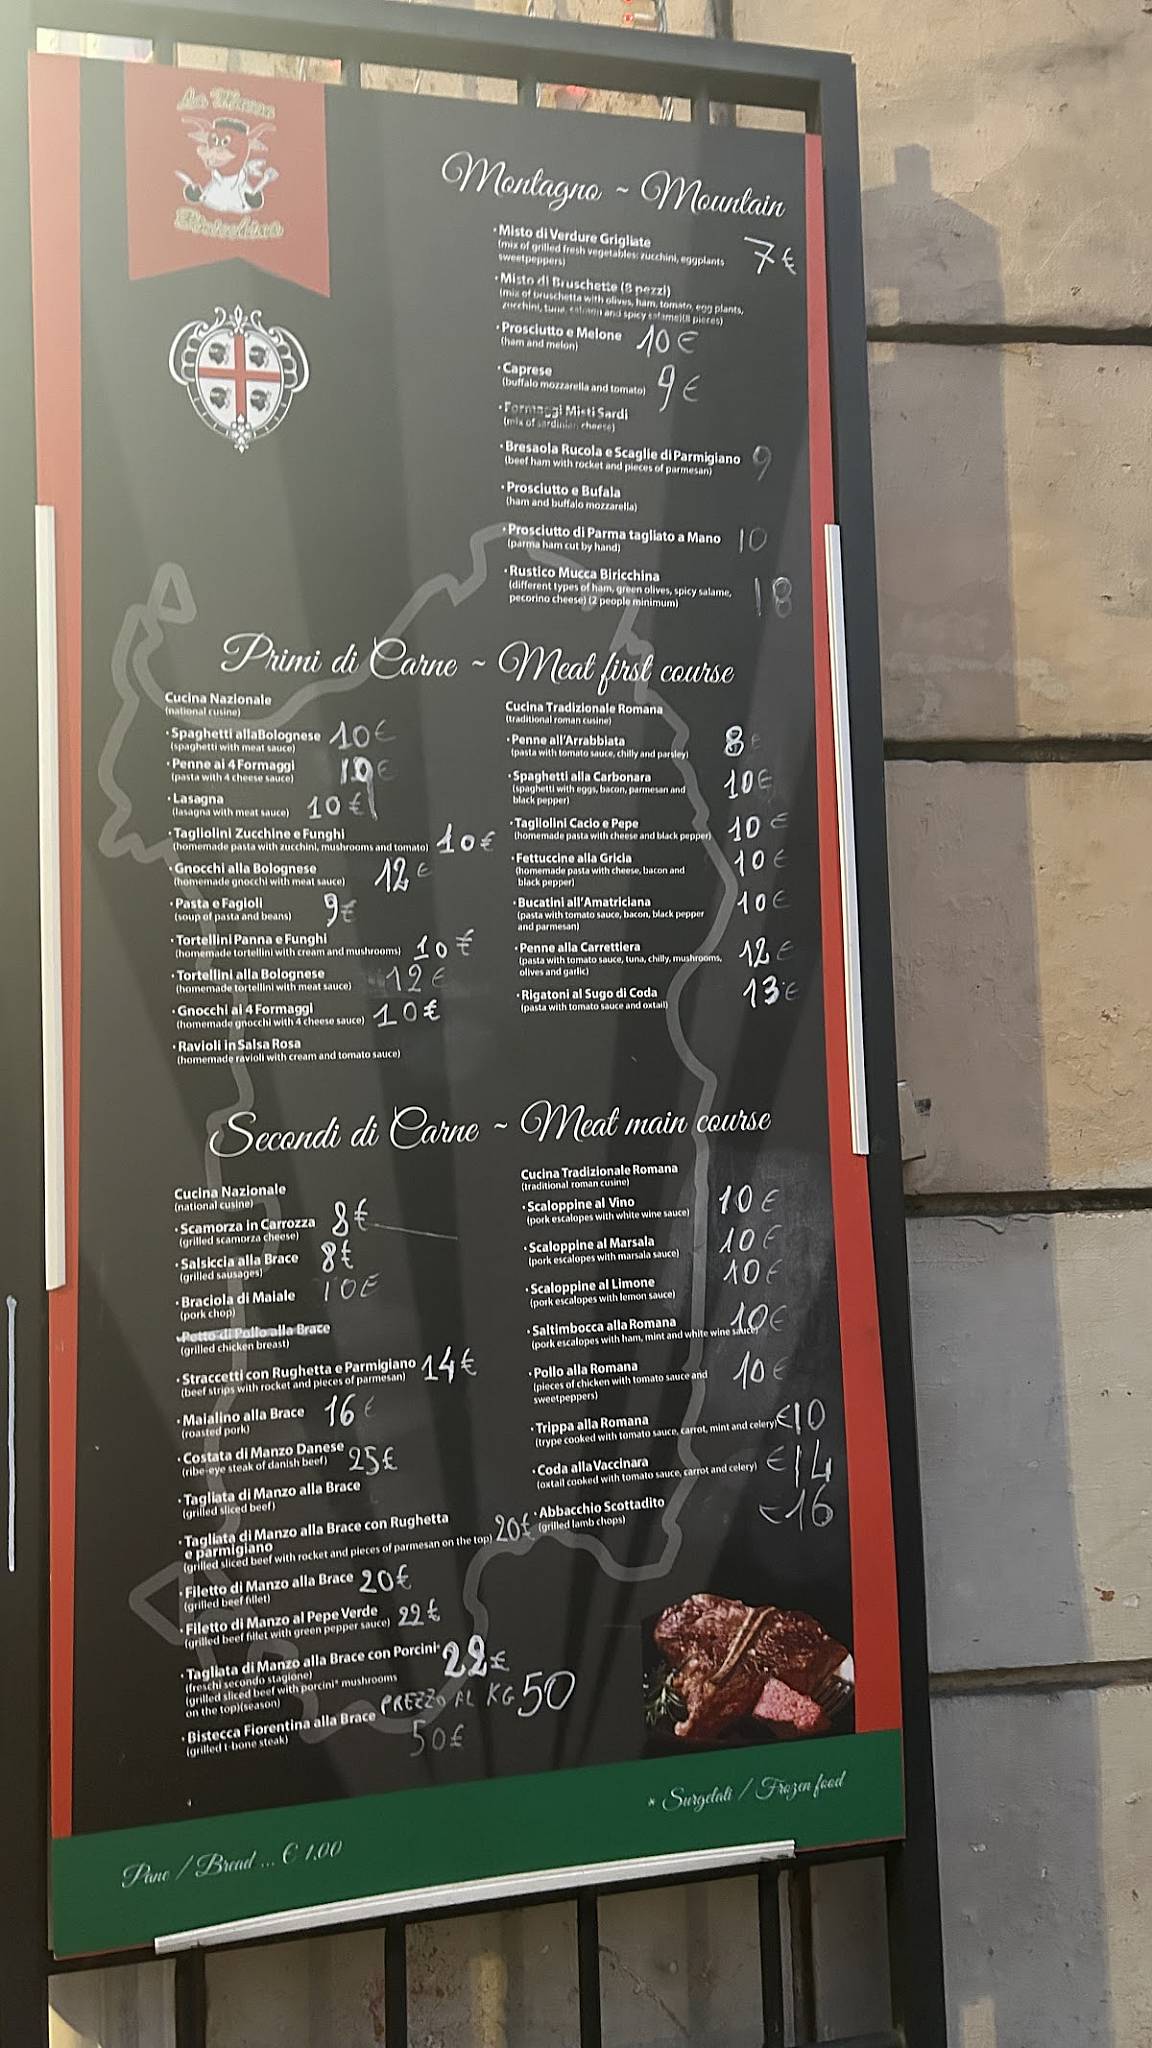 La Mucca
Biricchina
Montagna ~ Mountain
• Misto di Verdure Grigliate 7€
(mix of grilled fresh vegetables: zucchini, eggplants
sweetpeppers)
• Misto di Bruschette (8 pezzi)
(mix of bruschetta with olives, ham, tomato, egg plants,
zucchini, tuna, salmon and spicy salame)(8 pieces)
• Prosciutto e Melone 10€
(ham and melon)
• Caprese 9€
(buffalo mozzarella and tomato)
• Formaggi Misti Sardi
(mix of sardinian cheese)
• Bresaola Rucola e Scaglie di Parmigiano 9
(beef ham with rocket and pieces of parmesan)
• Prosciutto e Bufala
(ham and buffalo mozzarella)
• Prosciutto di Parma tagliato a Mano 10
(parma ham cut by hand)
• Rustico Mucca Biricchina 18
(different types of ham, green olives, spicy salame,
pecorino cheese) (2 people minimum)
Primi di Carne ~ Meat first course
Cucina Nazionale
(national cusine)
• Spaghetti allaBolognese 10€
(spaghetti with meat sauce)
• Penne ai 4 Formaggi 10€
(pasta with 4 cheese sauce)
• Lasagna 10€
(lasagna with meat sauce)
• Tagliolini Zucchine e Funghi 10€
(homemade pasta with zucchini, mushrooms and tomato)
• Gnocchi alla Bolognese 12€
(homemade gnocchi with meat sauce)
• Pasta e Fagioli 9€
(soup of pasta and beans)
• Tortellini Panna e Funghi 10€
(homemade tortellini with cream and mushrooms)
• Tortellini alla Bolognese 12€
(homemade tortellini with meat sauce)
• Gnocchi ai 4 Formaggi 10€
(homemade gnocchi with 4 cheese sauce)
• Ravioli in Salsa Rosa
(homemade ravioli with cream and tomato sauce)
Cucina Tradizionale Romana
(traditional roman cusine)
• Penne all'Arrabbiata 8€
(pasta with tomato sauce, chilly and parsley)
• Spaghetti alla Carbonara 10€
(spaghetti with eggs, bacon, parmesan and
black pepper)
• Tagliolini Cacio e Pepe 10€
(homemade pasta with cheese and black pepper)
• Fettuccine alla Gricia 10€
(homemade pasta with cheese, bacon and
black pepper)
• Bucatini all'Amatriciana 10€
(pasta with tomato sauce, bacon, black pepper
and parmesan)
• Penne alla Carrettiera 12€
(pasta with tomato sauce, tuna, chilly, mushrooms,
olives and garlic)
• Rigatoni al Sugo di Coda 13€
(pasta with tomato sauce and oxtail)
Secondi di Carne ~ Meat main course
Cucina Nazionale
(national cusine)
• Scamorza in Carrozza 8€
(grilled scamorza cheese)
• Salsiccia alla Brace 8€
(grilled sausages)
• Braciola di Maiale 10€
(pork chop)
• Petto di Pollo alla Brace
(grilled chicken breast)
• Straccetti con Rughetta e Parmigiano 14€
(beef strips with rocket and pieces of parmesan)
• Maialino alla Brace 16€
(roasted pork)
• Costata di Manzo Danese 25€
(ribe-eye steak of danish beef)
• Tagliata di Manzo alla Brace
(grilled sliced beef)
• Tagliata di Manzo alla Brace con Rughetta
e parmigiano
(grilled sliced beef with rocket and pieces of parmesan on the top) 20€
• Filetto di Manzo alla Brace 20€
(grilled beef fillet)
• Filetto di Manzo al Pepe Verde 22€
(grilled beef fillet with green pepper sauce)
• Tagliata di Manzo alla Brace con Porcini* 22€
(freschi secondo stagione)
(grilled sliced beef with porcini* mushrooms
on the top)(season)
• Bistecca Fiorentina alla Brace PREZZO AL KG 50
(grilled t-bone steak) 50€
Cucina Tradizionale Romana
(traditional roman cusine)
• Scaloppine al Vino 10€
(pork escalopes with white wine sauce)
• Scaloppine al Marsala 10€
(pork escalopes with marsala sauce)
• Scaloppine al Limone 10€
(pork escalopes with lemon sauce)
• Saltimbocca alla Romana 10€
(pork escalopes with ham, mint and white wine sauce)
• Pollo alla Romana 10€
(pieces of chicken with tomato sauce and
sweetpeppers)
• Trippa alla Romana €10
(trype cooked with tomato sauce, carrot, mint and celery)
• Coda alla Vaccinara €14
(oxtail cooked with tomato sauce, carrot and celery)
• Abbacchio Scottadito €16
(grilled lamb chops)
Pane / Bread ... € 1,00
* Surgelati / Frozen food